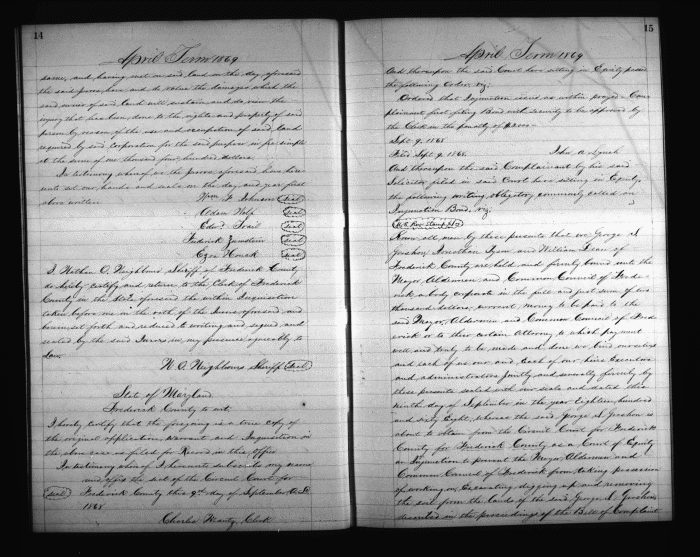 14
April Term 1869
same, and having met on said land on the day aforesaid
the said jurors, here and do value the damages which the
said owner of said land will sustain and do assess the
injury that has been done to the rights and property of said
person by reason of the use and occupation of said land
required by said corporation for the said purpose in fee simple
at the sum of one thousand four hundred dollars.
In testimony whereof we the jurors aforesaid have here
unto set our hands and seals on the day and year first
above written
Wm. F. Johnson Seal
Adam Wolf Seal
Edwd. Trail Seal
Frederick Seal
Ezra Houck Seal
I Nathan O. Neighbours Sheriff of Frederick County
do hereby certify and return to the Clerk of Frederick
County in the State aforesaid the within Inquisition
taken before me on the oath of the Jurors aforesaid and
herein set forth and reduced to writing and signed and
sealed by the said Jurors in my presence agreeably to
Law.
N. O. Neighbours Sheriff Seal
State of Maryland
Frederick County to wit:
I hereby certify that the foregoing is a true copy of
the original application, warrant and Inquisition in
the above case as filed for Record in this Office
In testimony whereof I hereunto subscribe my name
and affix the seal of the Circuit Court for
Seal Frederick County this 9th day of September A.D.
1868
Charles Mantz, Clerk
15
April Term 1869
And thereupon the said Court here sitting in Equity passed
the following Order, viz;
Ordered that Injunction issue as within prayed. Com-
plainant first filing Bond with security to be approved by
the Clerk in the penalty of $2000.
Sept 9. 1868
Filed Sept. 9. 1868. John A. Lynch
And thereupon the said Complainant by his said
Solicitor filed in said Court here sitting in Equity,
the following writing obligatory commonly called an
Injunction Bond, viz;
Rev Stamp
Know all men by these presents that we George S.
Jonathan Tyson and William Dean of
Frederick County are held and firmly bound unto the
Mayor, Aldermen and Common Council of Frede-
rick a body corporate in the full and just sum of two
thousand dollars, current money to be paid to the
said Mayor, Aldermen and Common Council of Fred-
erick or to their certain Attorney to which payment
well and truly to be made and done we bind ourselves
and each of us our and each of our heirs Executors
and administrators jointly and severally firmly by
these presents sealed with our seals and dated this
ninth day of September in the year Eighteen hundred
and sixty Eight, whereas the said George S.
about to obtain from the Circuit Court for Frederick
County for Frederick County as a Court of Equity
an Injunction to prevent the Mayor Aldermen and
Common Council of Frederick from taking possession
of working on, Excavating digging up and removing
the soil from the lands of the said George S.
described in the proceedings of the Bill of Complaint